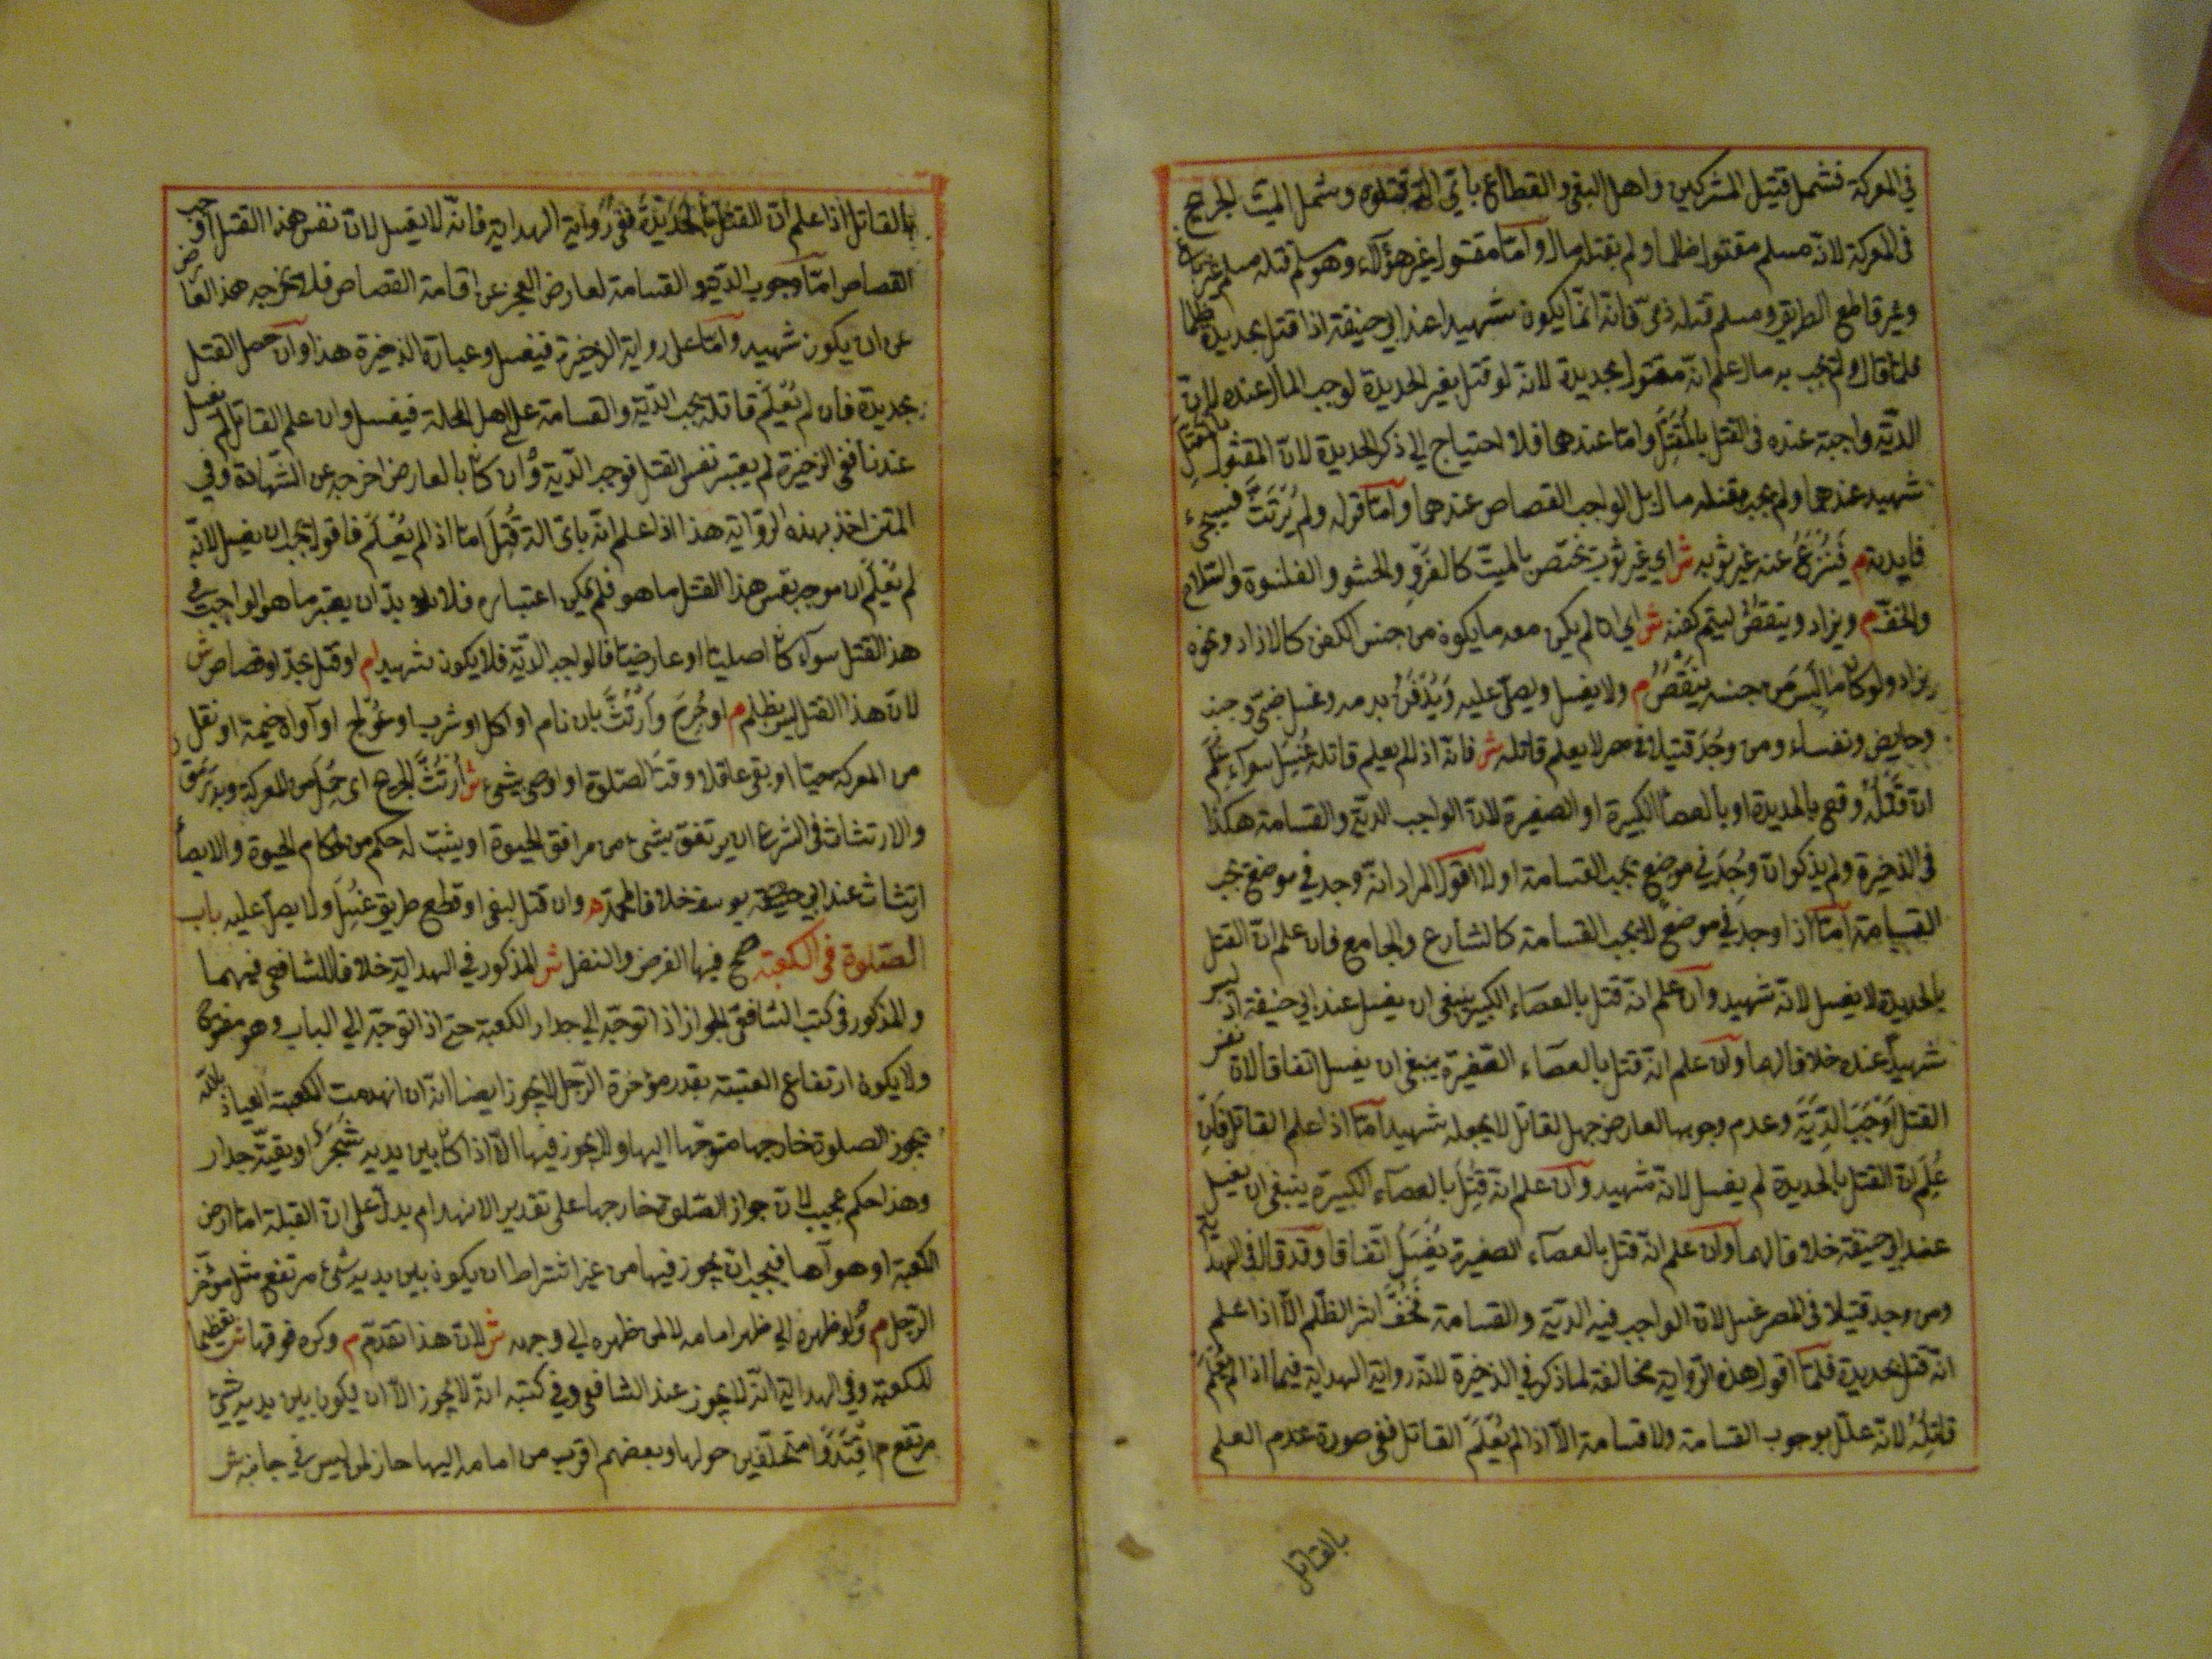 في المعركة فتشمل قتيل المشركين واهل البغي والقطاع باي الة قتلوه وشمل الميت الجريح
في المعركة لانه مسلم مقتول ظلما ولم يقتله مال واما مقتول غير هؤلاء وهو مسلم قتله مسلم غير باغ
وغير قاطع الطريق ومسلم قتله ذمي فانه انما يكون شهيدا عند ابي حنيفة اذا قتل بحديدة ظلما
فلما قال ولم يجب به مال علم انه مقتول بحديدة لانه لو قتل بغير الحديدة لوجب المال عنده لان
الدية واجبة عنده في القتل بالمثقل واما عندهما فلا احتياج الى ذكر الحديدة لان المقتول بالمثقل
شهيد عندهما ولم يجب بقتله مال بل الواجب القصاص عندهما واما قوله ولم يرتث فسيجيء
فايدته م فينزع عنه غير ثوبه ش اي غير ثوب يختص بالميت كالفرو والحشو والقلنسوة والسلاح
والخف م ويزاد وينقص ليتم كفنه ش اي ان لم يكن معه ما يكون من جنس الكفن كالازار ونحوه
يزاد ولو كان ما ليس من جنسه ينقص م ولا يغسل ويصلى عليه ويدفن بدمه وغسل صبي وجنب
وحايض ونفساء ومن وجد قتيلا في مصر لا يعلم قاتله ش فانه اذا لم يعلم قاتله غسل سواء علم
ان قتله وقع بالحديدة او بالعصا الكبيرة او الصغيرة لان الواجب الدية والقسامة هكذا
في الذخيرة ولم يذكر ان وجد في موضع يجب القسامة او لا اقول المراد انه وجد في موضع يجب
القسامة اما اذا وجد في موضع لا يجب القسامة كالشارع والجامع فان علم ان القتل
بالحديدة لا يغسل لانه شهيد وان علم انه قتل بالعصاء الكبير ينبغي ان يغسل عند ابي حنيفة اذ ليس
شهيدا عنده خلافا لهما وان علم انه قتل بالعصاء الصغيرة ينبغي ان يغسل اتفاقا لان نفس
القتل اوجب الدية وعدم وجوبها لعارض جهل القاتل لا يجعله شهيدا اما اذا علم القاتل فان
علم ان القتل بالحديدة لم يغسل لانه شهيد وان علم انه قتل بالعصاء الكبيرة ينبغي ان يغسل
عند ابي حنيفة خلافا لهما وان علم انه قتل بالعصاء الصغيرة يغسل اتفاقا وقد قال في الهداية
ومن وجد قتيلا في المصر غسل لان الواجب فيه الدية والقسامة فخف اثر الظلم الا اذا علم
انه قتل بحديدة ظلما اقول هذه الرواية مخالفة لما ذكر في الذخيرة لان رواية الهداية فيما اذا لم يعلم
قاتله لانه علل بوجوب القسامة ولا قسامة الا اذا لم يعلم القاتل ففي صورة عدم العلم
بالقاتل
بالقاتل اذا علم ان القتل بالحديدة ففي رواية الهداية فانه لا يغسل لان نفس هذا القتل اوجب
القصاص اما وجوب الدية والقسامة لعارض العجز عن اقامة القصاص فلا يخرجه هذا العارض
عن ان يكون شهيد واما على رواية الذخيرة فيغسل وعبارة الذخيرة هذا وان حصل القتل
بحديدة فان لم يعلم قاتله يجب الدية والقسامة على اهل المحلة فيغسل وان علم القاتل لم يغسل
عندنا ففي الذخيرة لم يعتبر نفس القتل فوجب الدية وان كان بالعارض اخرجه عن الشهادة وفي
المتن اخذ بهذه الرواية هذا اذا علم انه باي الة قتل اما اذا لم يعلم فاقول يجب ان يغسل لانه
لم يعلم ان موجب نفس هذا القتل ما هو فلم يمكن اعتباره فلا بد ان يعتبر ما هو الواجب في
هذا القتل سواء كان اصليا او عارضيا فالواجب الدية فلا يكون شهيدا م او قتل بحد او قصاص ش
لان هذا القتل ليس بظلم م او جرح وارتث بان نام او اكل او شرب او عولج او آواه خيمة او نقل
من المعركة حيا او بقي عاقلا وقت الصلوة او اوصى بشيء ش ارتث الجريح اي حمل من المعركة وبه رمق
والارتثاث في الشرع ان يرتفق بشيء من مرافق الحيوة او يثبت له حكم من احكام الحيوة والايصاء
ارتثاث عند ابي يوسف خلافا لمحمد وان قتل لبغي او قطع طريق غسل ولا يصلى عليه باب
الصلوة في الكعبة صح فيها الفرض والنفل ش المذكور في الهداية خلافا للشافعي فيهما
والمذكور في كتب الشافعي الجواز اذا توجه الى جدار الكعبة حتى اذا توجه الى الباب وهو مفتوح
ولا يكون ارتفاع العتبة بقدر مؤخرة الرحل لا يجوز ايضا انه ان انهدمت الكعبة العياذ بالله
يجوز الصلوة خارجها متوجها اليها ولا يجوز فيها الا اذا كان بين يديه شجر او بقية جدار
وهذا حكم عجيب لان جواز الصلوة خارجها على تقدير الانهدام يدل على ان القبلة اما ارض
الكعبة او هواها فيجب ان يجوز فيها من غير اشتراط ان يكون بين يديه شيء مرتفع مثل مؤخر
الرحل م ولو ظهره الى ظهر امامه لا لمن ظهره الى وجهه ش لان هذا تقدم م وكره فوقها ش تعظيما
للكعبة وفي الهداية انه لا يجوز عند الشافعي وفي كتبه انه لا يجوز الا ان يكون بين يديه شيء
مرتفع م اقتدوا متحلقين حولها وبعضهم اقرب من امامه اليها جاز لمن ليس في جانبه ش